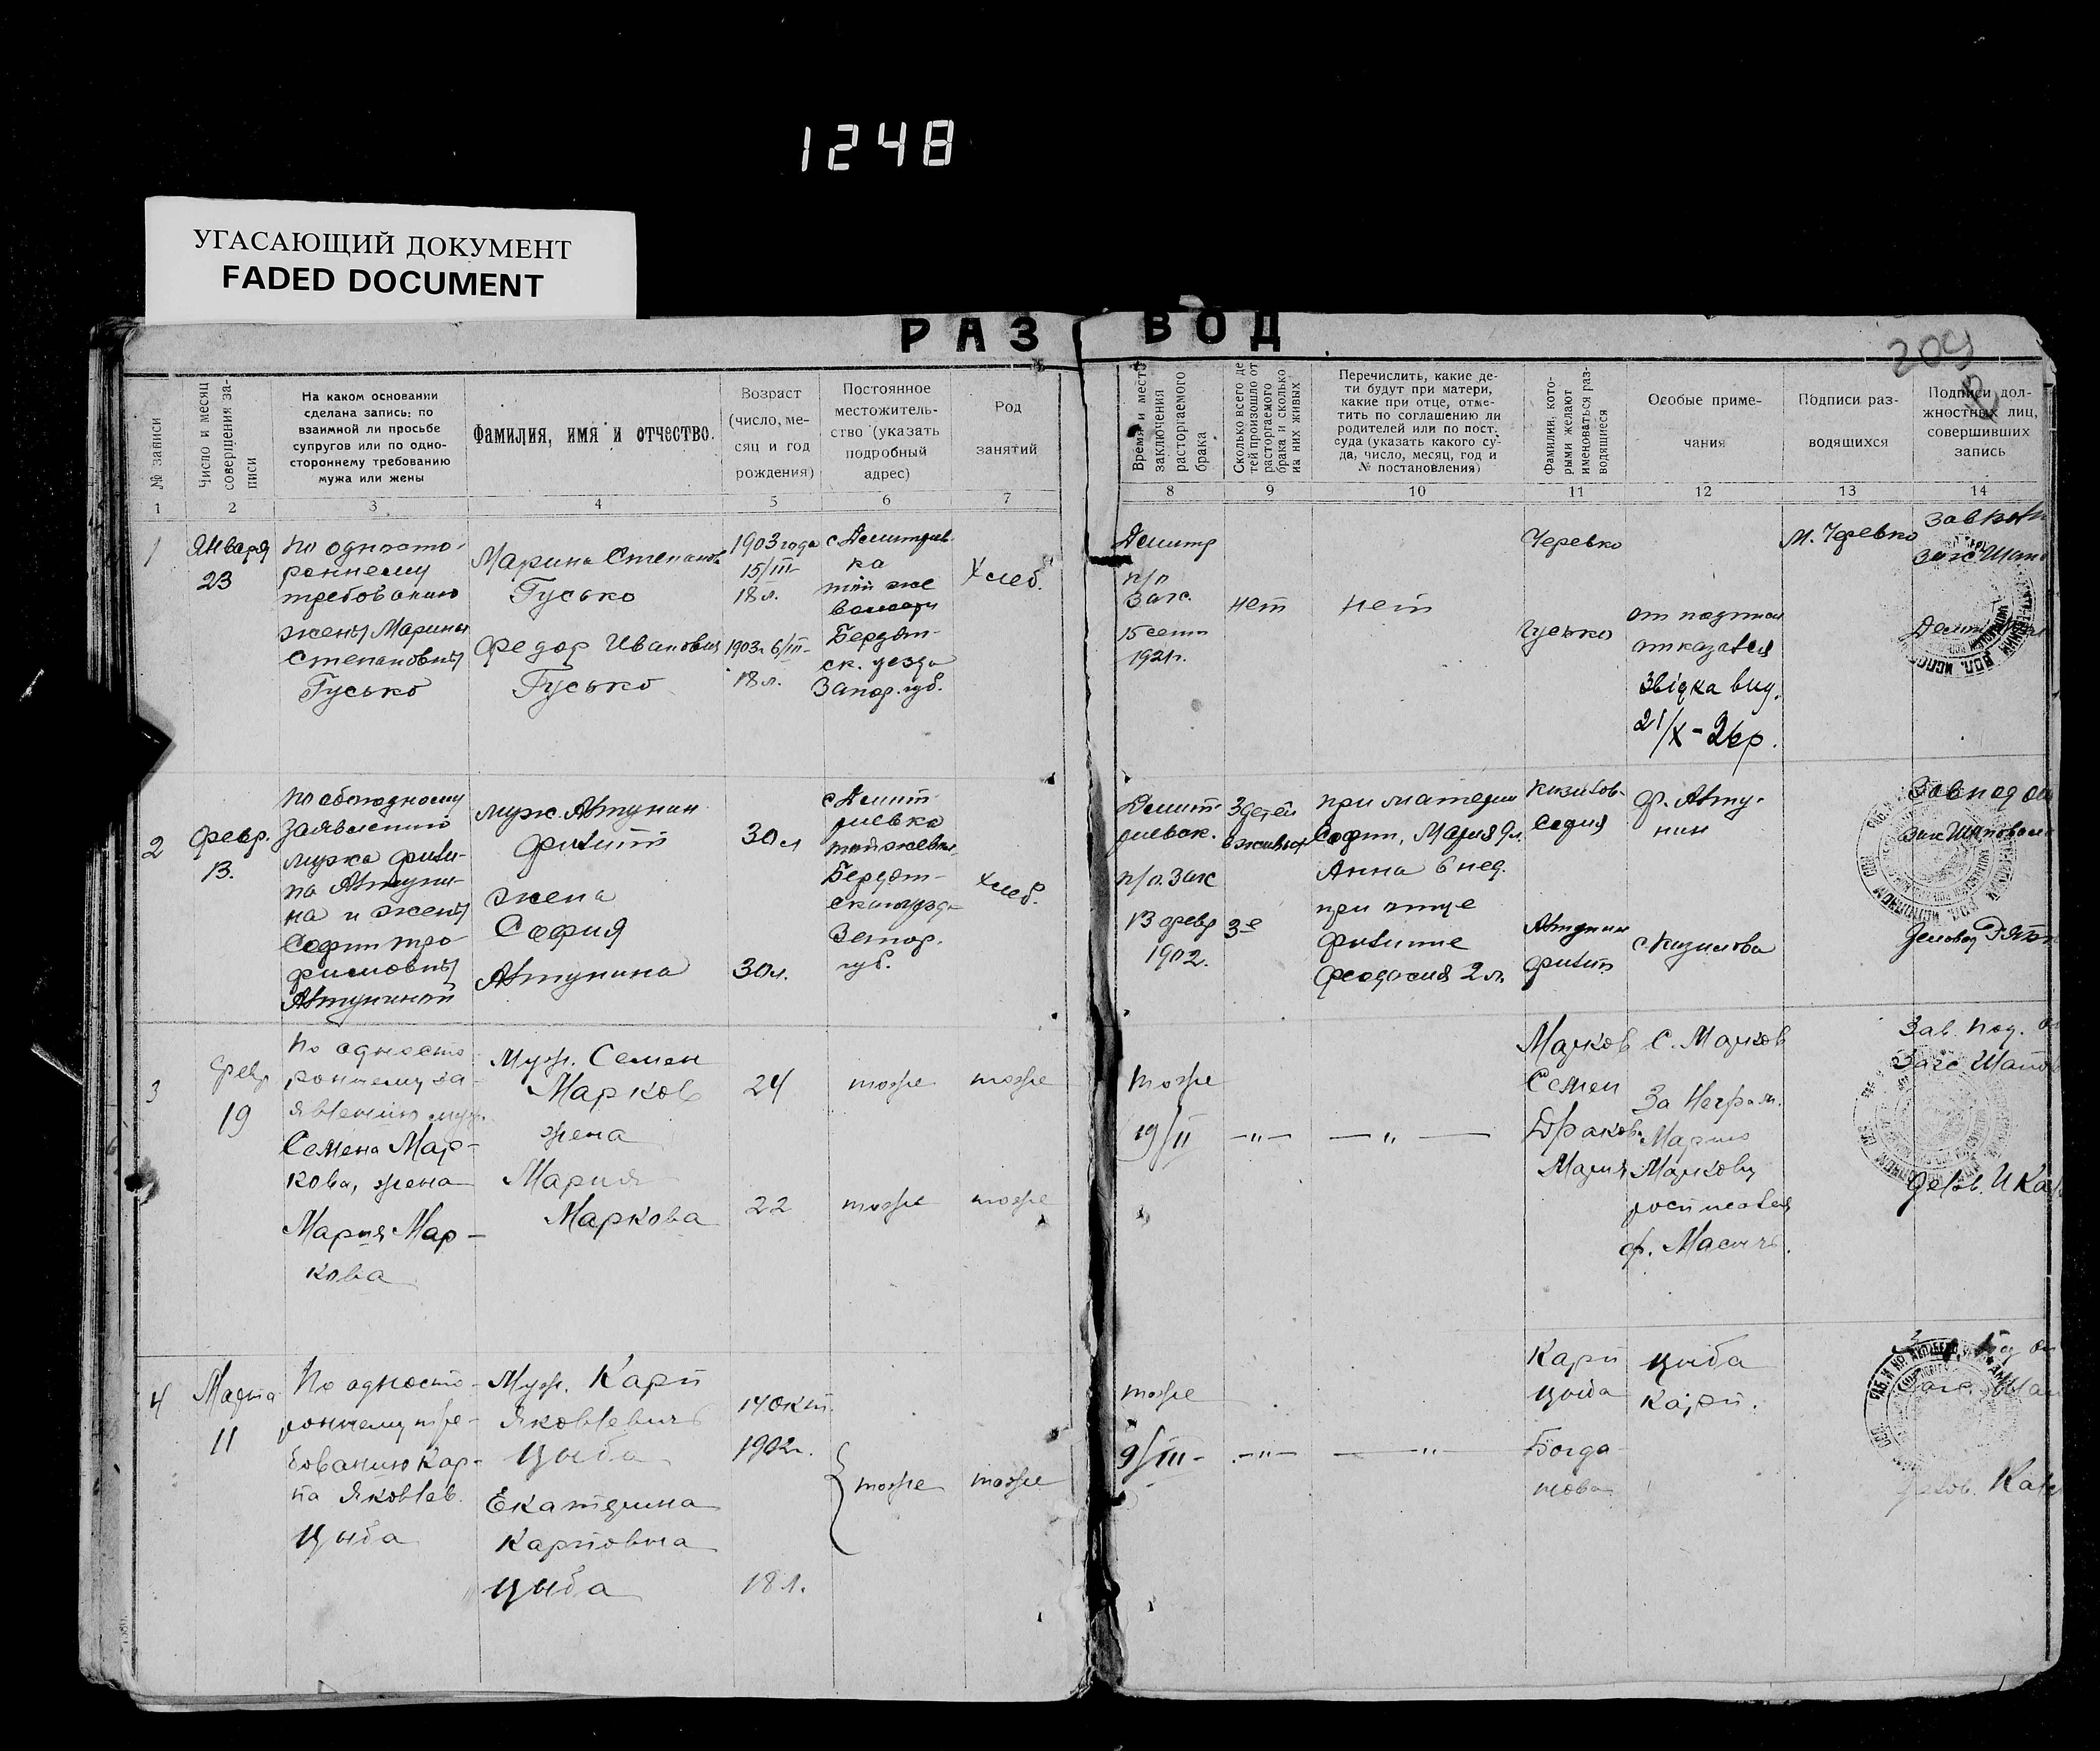 1248
УГАСАЮЩИЙ ДОКУМЕНТ
FADED DOCUMENT
РАЗВОД
209
№ записи
Число и месяц
совершения за-
писи
На каком основании
сделана запись: по
взаимной ли просьбе
супругов или по одно-
стороннему требованию
мужа или жены
Фамилия, имя и отчество.
Возраст
(число, ме-
сяц и год
рождения)
Постоянное
местожитель-
ство (указать
подробный
адрес)
Род
занятий
Время и место
заключения
расторгаемого
брака
Сколько всего де
тей произошло от
расторгаемого
брака и сколько
из них живых
Перечислить, какие де-
ти будут при матери,
какие при отце, отме-
тить по соглашению ли
родителей или по пост.
суда (указать какого су-
да, число, месяц, год и
№ постановления)
Фамилии, кото-
рыми желают
именоваться раз-
водящиеся
Особые приме-
чания
Подписи раз-
водящихся
Подписи дол-
жностных лиц,
совершивших
запись
1 2 3 4 5 6 7 8 9 10 11 12 13 14
1
Января
23
по односто-
роннему
требованию
жены Марины
Степановны
Гусько
Марина Степанов
Гусько
Федор Иванович
Гусько
1903 года
15/III
18 л.
1903 г. 6/III-
18 л.
с Дмитриев
ка
той же
волости
Бердян-
ск. уезда
Запор. губ.
Хлеб.
Дмитр
п/о
Загс.
15 сент
1921 г.
нет
нет
Черевко
Гусько
от подписи
отказался
Звідка вид.
21/X-26 р.
М. Черевко
2
Февр.
13.
по обоюдному
заявлению
мужа Фили-
па Автуни-
на и жены
Софии Тро-
фимовны
Автуниной
муж. Автунин
Филипп
жена
София
Автунина
30 л
30 л.
с Дмит-
риевка
той же вол.
Бердян-
ского уезда
Запор.
губ.
хлеб.
Дмит-
риевск.
п/о. Загс
13 февр
1902.
3 детей
в живых
3е
при матери
Софии, Мария 9 л.
Анна 6 нед.
при отце
Филиппе
Феодосия 2 л.
София
Автунин
Филип
Ф. Авту-
нин
3
Февр
19
По односто-
роннему за-
явлению муж.
Семена Мар-
кова, жена
Мария Мар-
кова
Муж. Семен
Марков
жена
Мария
Маркова
24
22
тоже
тоже
тоже
тоже
тоже
19/II
— " —
— " —
Марков
Семен
Мария
С. Марков
За Неграм.
Марию
Маркову
росписался
Ф. Масич.
Зав. Под.
4
Марта
11
По односто-
роннему тре-
бованию Кар-
па Яковлев.
Цыба
Муж. Карп
Яковлевич
Цыба
Екатерина
Карповна
Цыба
14 окт.
1902 г.
18 л.
тоже
тоже
тоже
9/III-
— " —
— " —
Карп
Цыба
Богда
нова
Цыба
Карп.